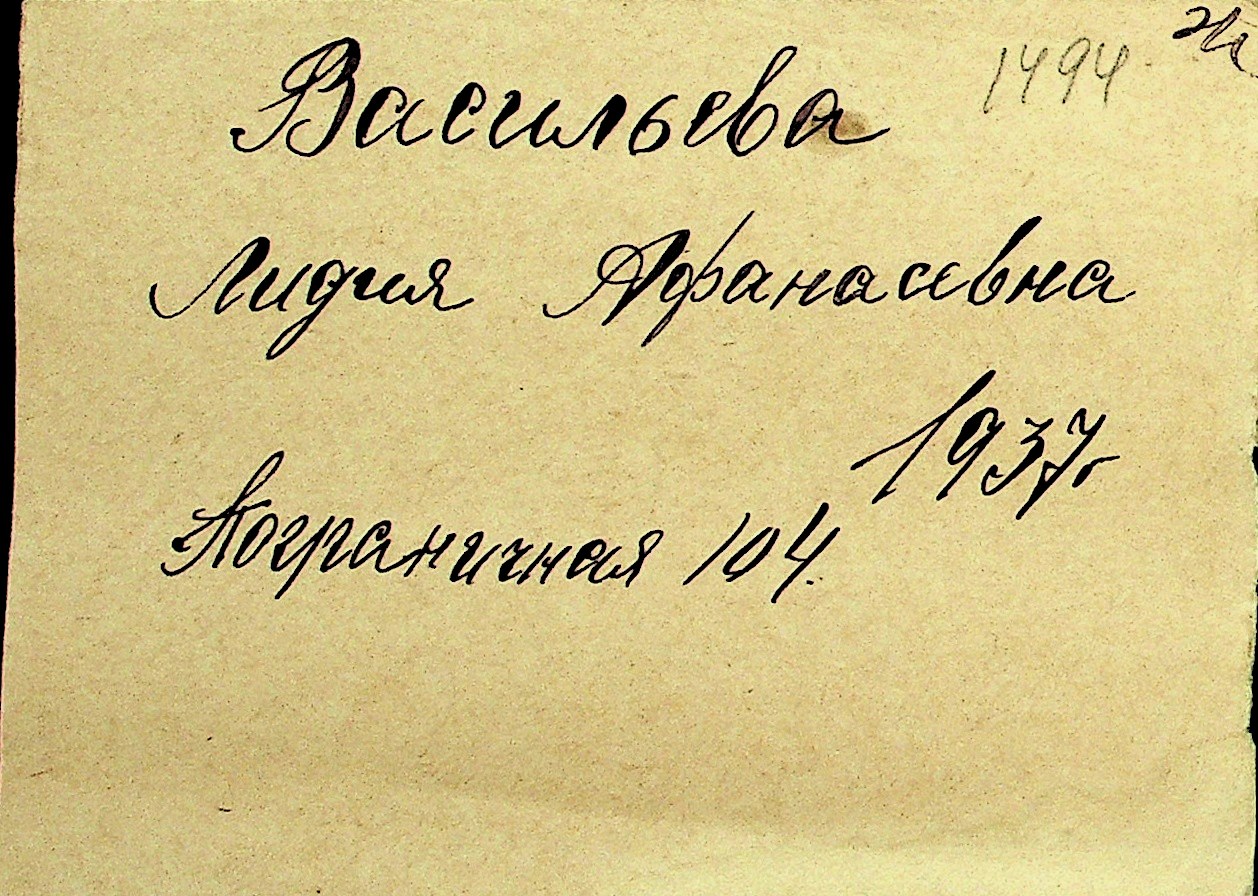 1494
Васильева
Лидия Афанасевна
1937г
Пограничная 104.